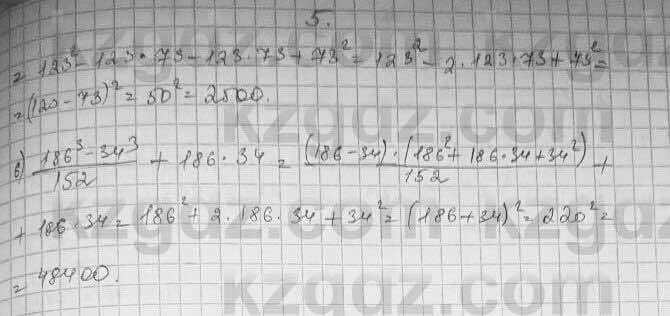 5.
= 123² - 123 · 73 - 123 · 73 + 73² = 123² - 2 · 123 · 73 + 73² =
= (123 - 73)² = 50² = 2500.
в) (186³ - 34³)/152 + 186 · 34 = ((186 - 34) · (186² + 186 · 34 + 34²))/152 +
+ 186 · 34 = 186² + 2 · 186 · 34 + 34² = (186 + 34)² = 220² =
= 48400.
kzgdz.com